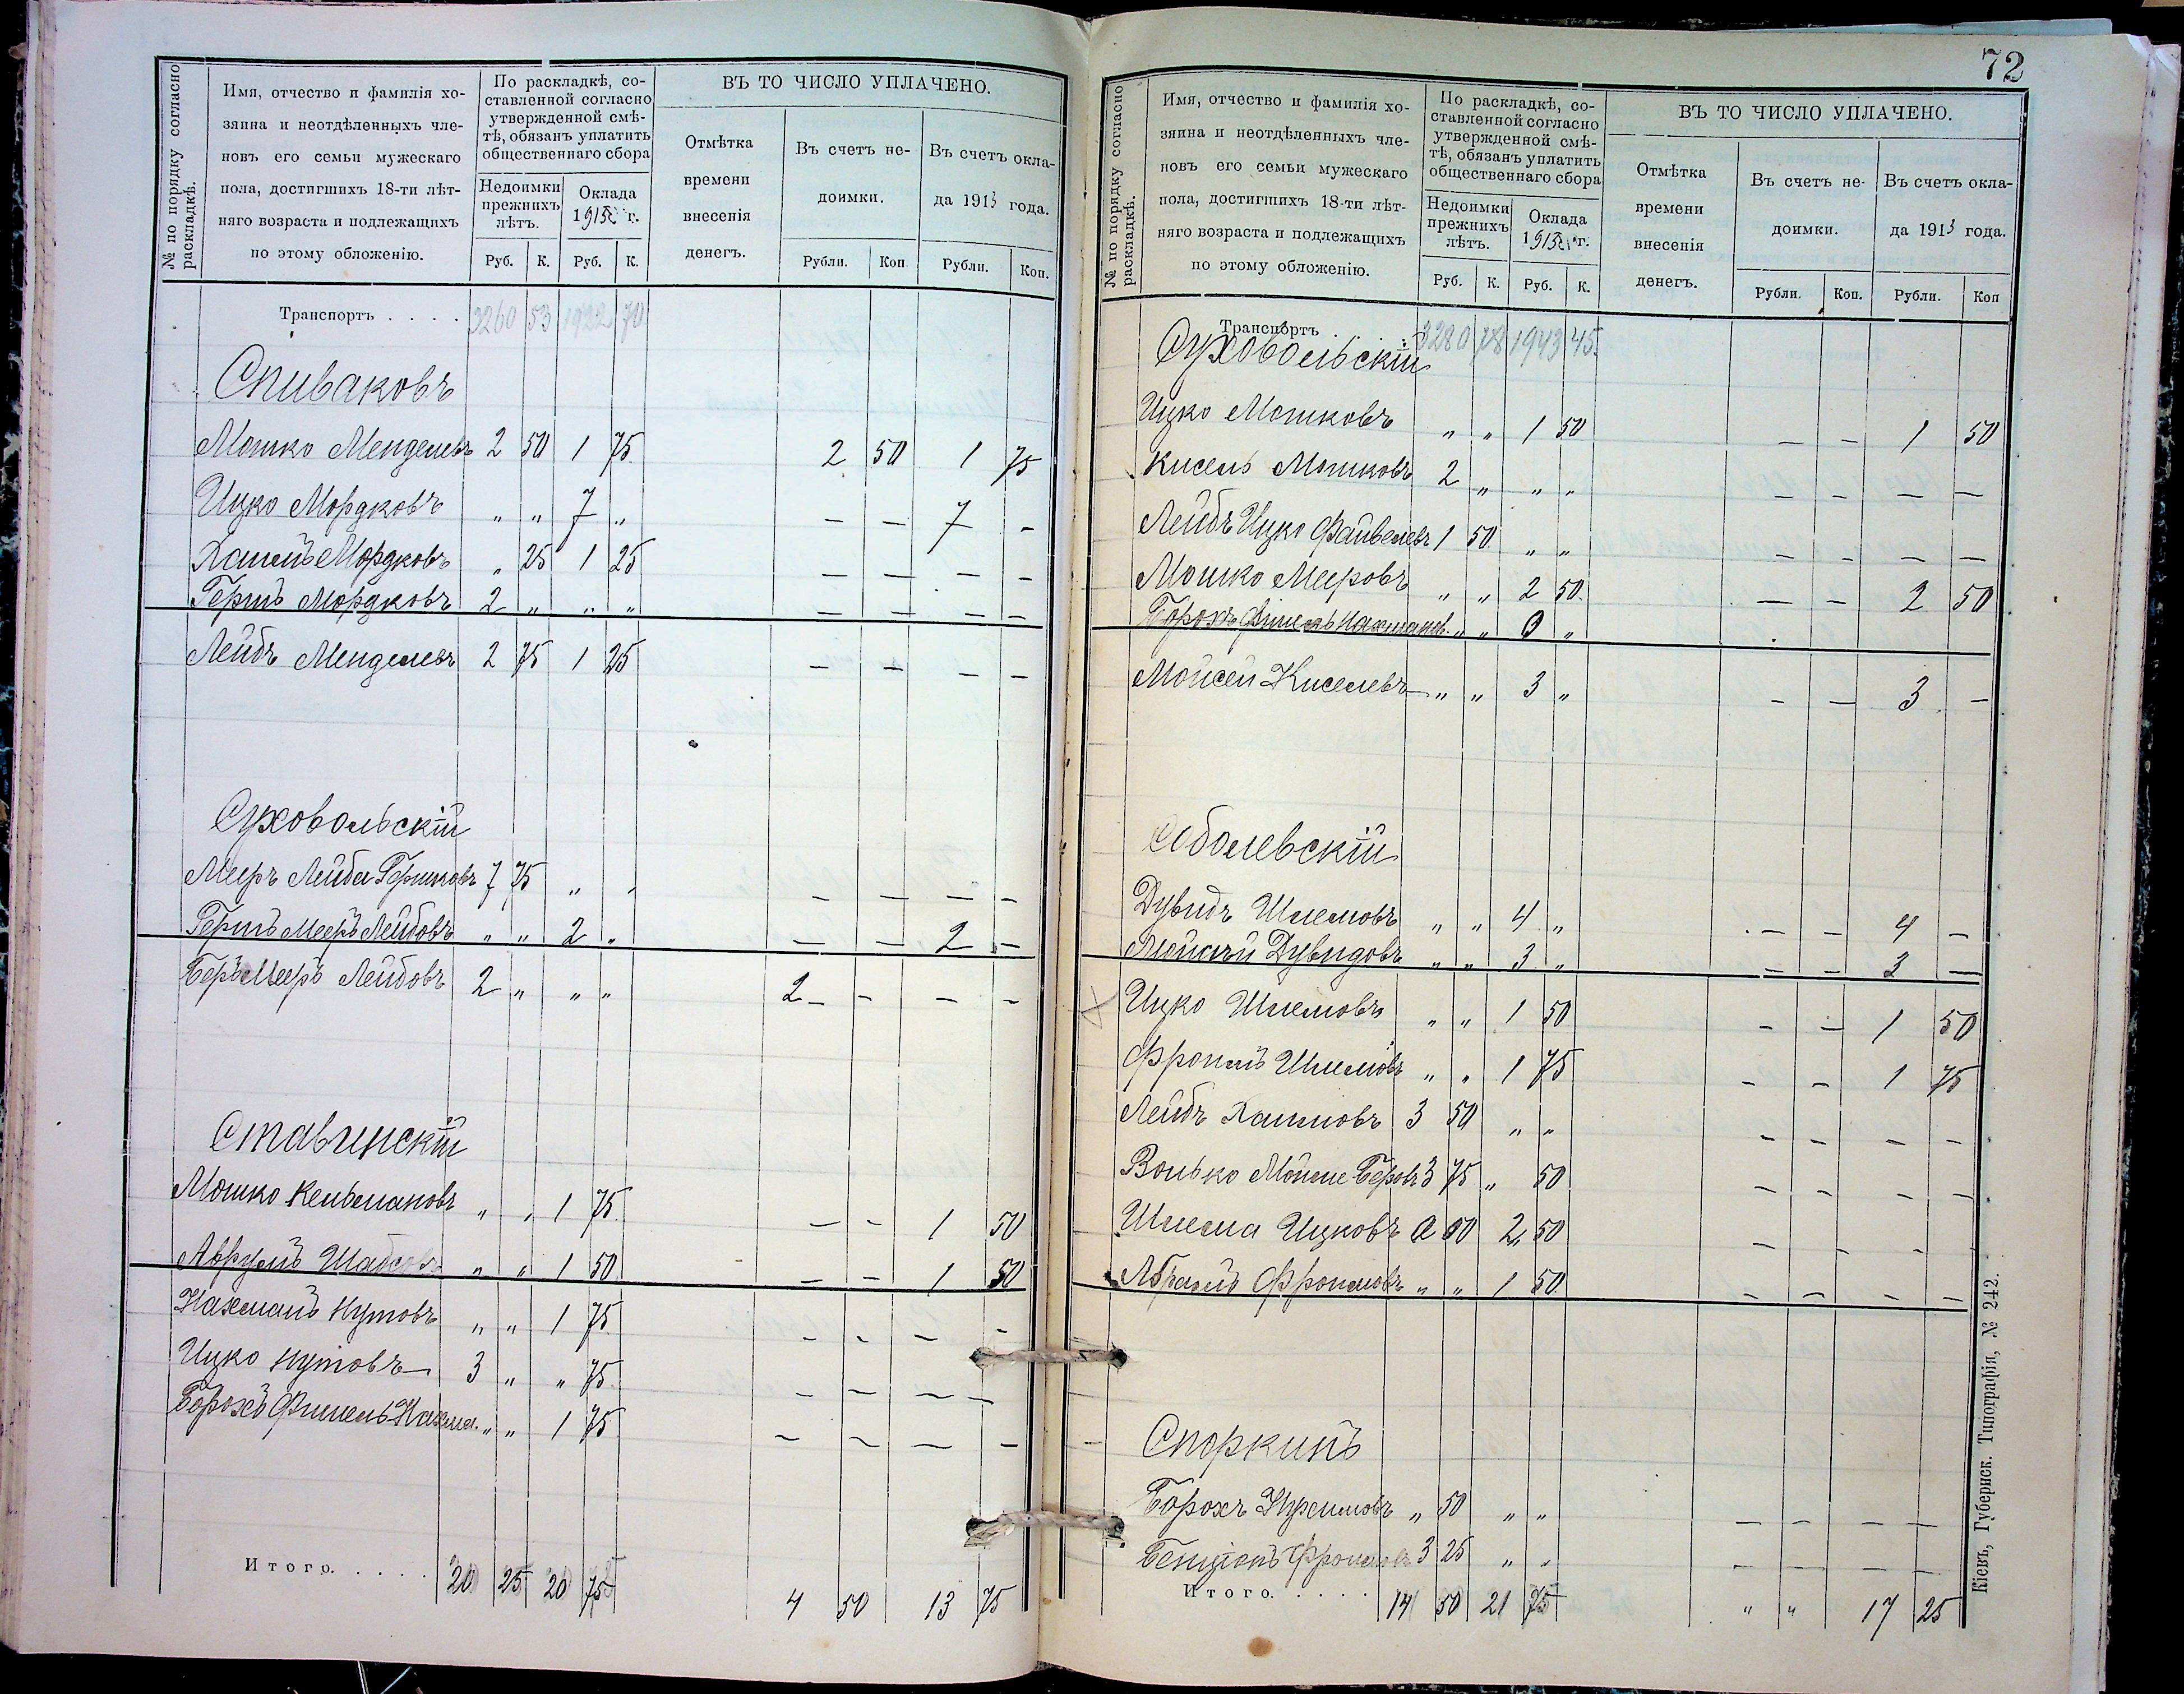 № по порядку согласно раскладкѣ.
Имя, отчество и фамилія хо-
зяина и неотдѣленныхъ чле-
новъ его семьи мужескаго
пола, достигшихъ 18-ти лѣт-
няго возраста и подлежащихъ
по этому обложенію.
По раскладкѣ, со-
ставленной согласно
утвержденной смѣ-
тѣ, обязанъ уплатить
общественнаго сбора
Недоимки прежнихъ лѣтъ.
Оклада 1913 г.
Руб. К. Руб. К.
ВЪ ТО ЧИСЛО УПЛАЧЕНО.
Отмѣтка
времени
внесенія
денегъ.
Въ счетъ не-
доимки.
Въ счетъ окла-
да 1913 года.
Рубли. Коп. Рубли. Коп.
Транспортъ . . . . 3260 53 1922 70
Спиваковъ
Мошко Менделевъ 2 50 1 75 2 50 1 75
Ицко Мордковъ " " 7 " — — 7 —
Хаимъ Мордковъ " 25 1 25 — — — —
Гершъ Мордковъ 2 " " " — — — —
Лейбъ Менделевъ 2 75 1 25 — — — —
Суховольскій
Меръ Лейба Гершковъ 7 75 " " — — — —
Гершъ Меръ Лейбовъ " " 2 " — — 2 —
Беръ Меръ Лейбовъ 2 " " " 2 — — — —
Ставинскій
Мошко Кельмановъ " " 1 75 — — 1 50
Аврумъ Шабсовъ " " 1 50 — — 1 50
Нахманъ Нутовъ " " 1 75 — — — —
Ицко Нутовъ 3 " " 75 — — — —
Борохъ Фишель Нахма. " " 1 75 — — — —
Итого. . . . . 20 25 20 75 4 50 13 75
72
№ по порядку согласно раскладкѣ.
Имя, отчество и фамилія хо-
зяина и неотдѣленныхъ чле-
новъ его семьи мужескаго
пола, достигшихъ 18-ти лѣт-
няго возраста и подлежащихъ
по этому обложенію.
По раскладкѣ, со-
ставленной согласно
утвержденной смѣ-
тѣ, обязанъ уплатить
общественнаго сбора
Недоимки прежнихъ лѣтъ.
Оклада 1913 г.
Руб. К. Руб. К.
ВЪ ТО ЧИСЛО УПЛАЧЕНО.
Отмѣтка
времени
внесенія
денегъ.
Въ счетъ не-
доимки.
Въ счетъ окла-
да 1913 года.
Рубли. Коп. Рубли. Коп
Транспортъ . . . . 3280 78 1943 45
Суховольскій
Ицко Мошковъ " " 1 50 — — 1 50
Кисель Мошковъ 2 " " " — — — —
Лейбъ Ицко Файвелевъ 1 50 " " — — — —
Мошко Меровъ " " 2 50 — — 2 50
Борохъ Фишель Нахманов. " " 0 "
Мойсей Киселевъ " " 3 " — — 3 —
Соболевскій
Дувидъ Шлемовъ " " 4 " — — 4 —
Мойсей Дувидовъ " " 3 " — — 3 —
Ицко Шлемовъ " " 1 50 — — 1 50
Фроимъ Шлемовъ " " 1 75 — — 1 75
Лейбъ Хаимовъ 3 50 " " — — — —
Волько Мойше Беровъ 3 75 " 50 — — — —
Шлема Ицковъ 0 00 2 50 — — — —
Абрамъ Фроимовъ " " 1 50 — — — —
Споркинъ
Борохъ " 50 " " — — — —
Бенционъ Фроимовъ 3 25 " " — — — —
Итого. . . . . 14 50 21 75 " " 17 25
Кіевъ, Губернск. Типографія, № 242.